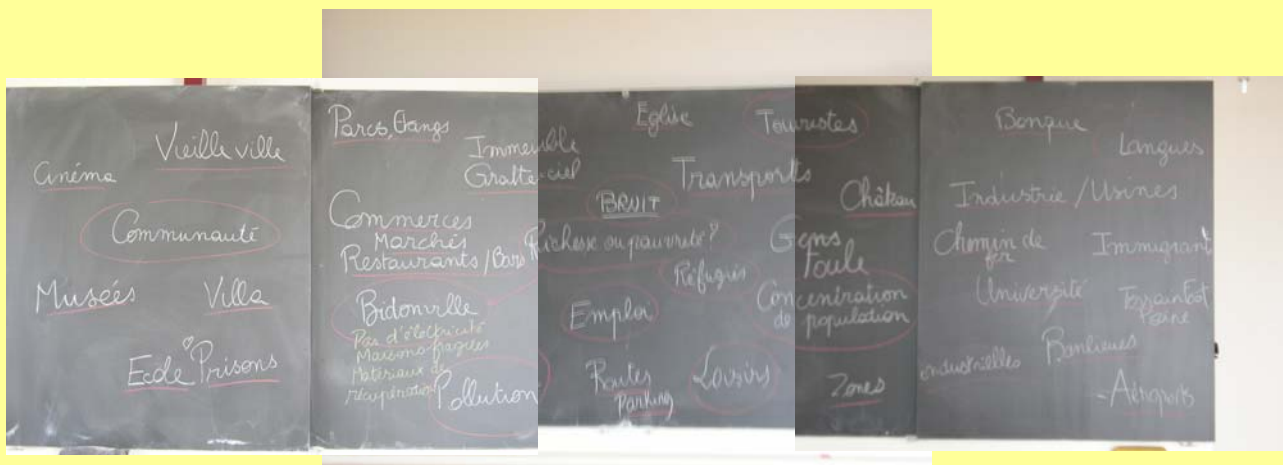 Vieille ville
Cinéma
Communauté
Musées
Villa
Ecole
Prisons
Parcs, Etangs
Immeuble
Gratte-ciel
Commerces
Marchés
Restaurants / Bars
Bidonville
Pas d'éléctricité
Maisons fragiles
Matériaux de
récupération
Pollution
Eglise
Touristes
Transports
BRUIT
Richesse ou pauvreté?
Réfugiés
Emploi
Routes
Parking
Loisirs
Château
Gens
Foule
Concentration
de population
Zones
industrielles
Banque
Langues
Industrie / Usines
Chemin de
fer
Immigrant
Université
Terrain Foot
Banlieues
- Aéroports